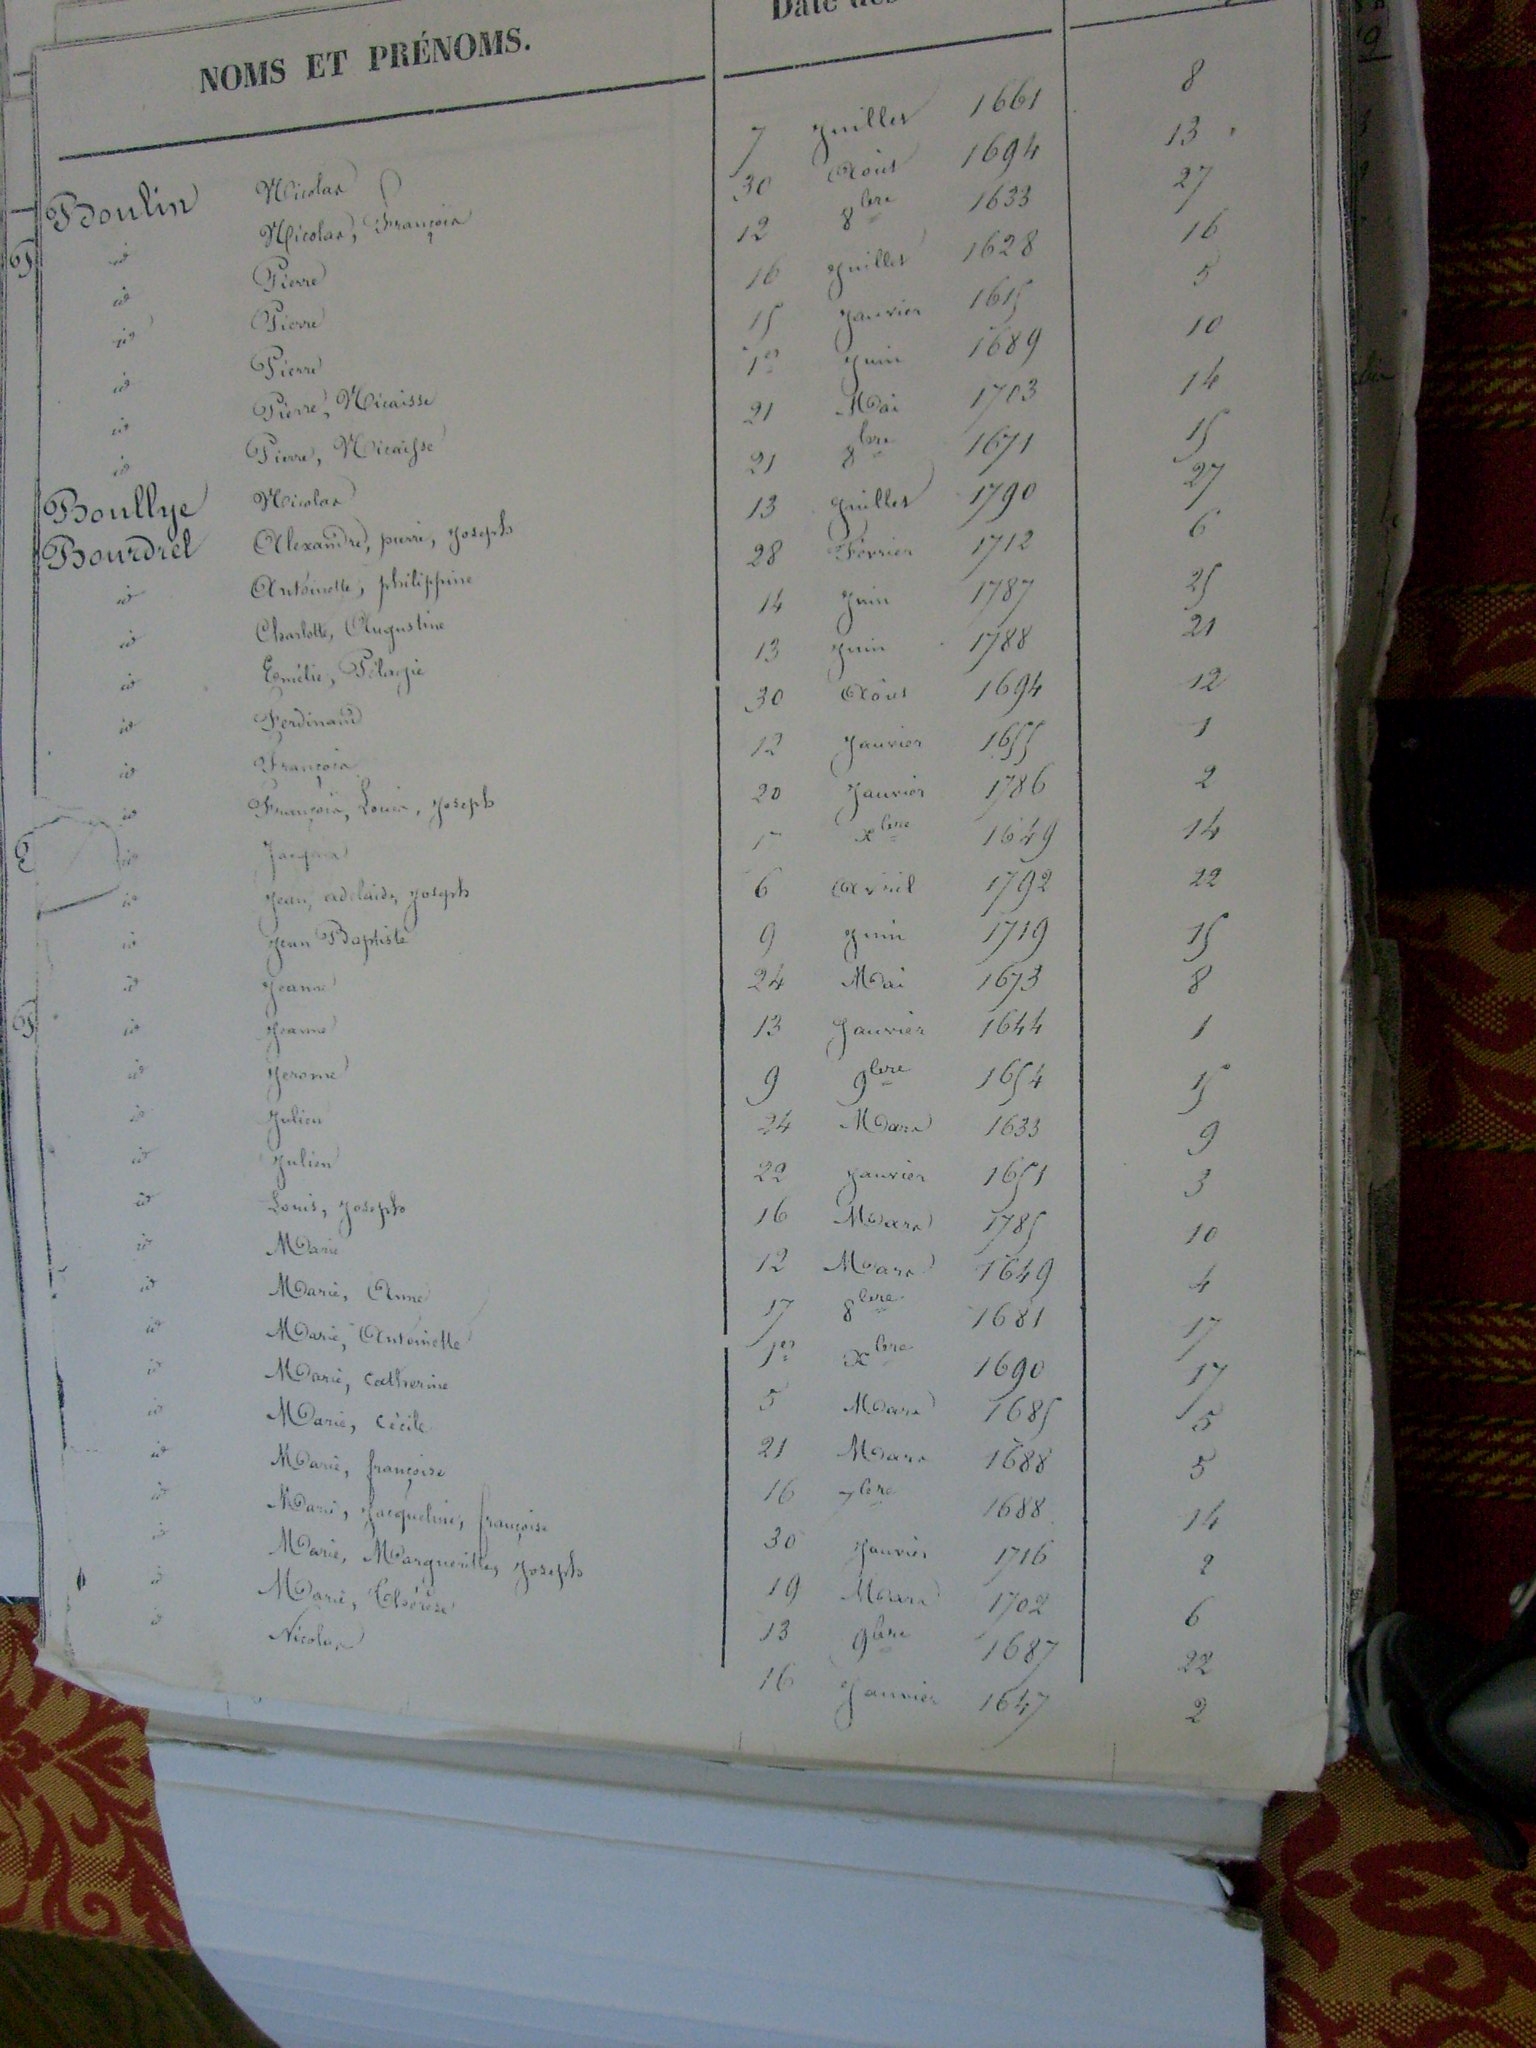 NOMS ET PRÉNOMS. Date des
Boulin Nicolas 7 Juillet 1661 8
id Nicolas, François 30 Août 1694 13
id Pierre 12 8bre 1633 27
id Pierre 16 Juillet 1628 16
id Pierre 15 Janvier 1615 5
id Pierre, Nicaisse 1er Juin 1689 10
id Pierre, Nicaisse 21 Mai 1703 14
Boullye Nicolas 21 8bre 1671 15
Bourdrel Alexandre, pierre, Joseph 13 Juillet 1790 27
id Antoinette, philippine 28 Février 1712 6
id Charlotte, Augustine 14 Juin 1787 25
id Emélie, Pélagie 13 Juin 1788 21
id Ferdinand 30 Août 1694 12
id François 12 Janvier 1655 1
id François, Louis, Joseph 20 Janvier 1786 2
id Jacques xbre 1649 14
id Jean, adelaide, Joseph 6 Avril 1792 22
id Jean Baptiste 9 Juin 1719 15
id Jeanne 24 Mai 1673 8
id Jeanne 13 Janvier 1644 1
id Jerome 9 9bre 1654 15
id Julien 24 Mars 1633 9
id Julien 22 Janvier 1651 3
id Louis, Joseph 16 Mars 1785 10
id Marie 12 Mars 1649 4
id Marie, Anne 17 8bre 1681 17
id Marie, Antoinette 1er xbre 1690 17
id Marie, catherine 5 Mars 1685 5
id Marie, cécile 21 Mars 1688 5
id Marie, françoise 16 7bre 1688 14
id Marie, Jacqueline, françoise 30 Janvier 1716 2
id Marie, Margueritte, Joseph 19 Mars 1702 6
id Marie, Thérèse 13 9bre 1687 22
id Nicolas 16 Janvier 1647 2